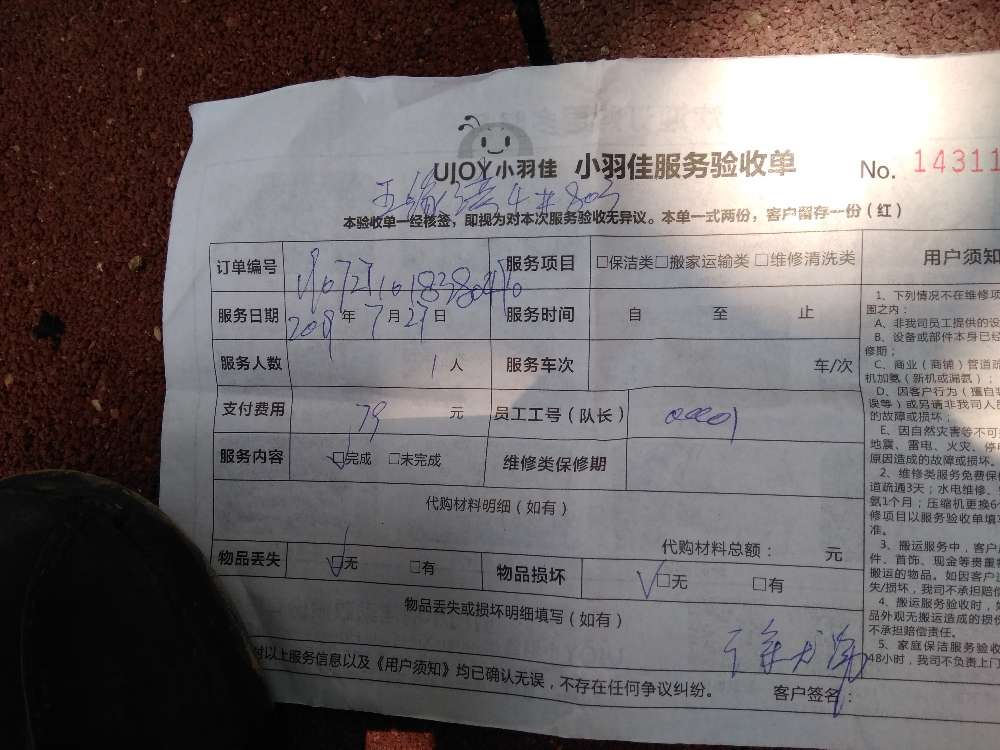 UJOY小羽佳 小羽佳服务验收单 No. 14311
4#803
本验收单一经核签，即视为对本次服务验收无异议。本单一式两份，客户留存一份（红）
订单编号 服务项目 □保洁类□搬家运输类 □维修清洗类
服务日期 2019年7月27日 服务时间 自 至 止
服务人数 1人 服务车次 车/次
支付费用 79 元 员工工号（队长） 00001
服务内容 □完成 □未完成 维修类保修期
代购材料明细（如有）
代购材料总额： 元
物品丢失 □无 □有 物品损坏 □无 □有
物品丢失或损坏明细填写（如有）
付以上服务信息以及《用户须知》均已确认无误，不存在任何争议纠纷。 客户签名：
用户须知
1、下列情况不在维修项
围之内：
A、非我司员工提供的设
B、设备或部件本身已经
修期；
C、商业（商铺）管道疏
机加氨（新机或漏氨）；
D、因客户行为（擅自装
误等）或另请非我司人员
的故障或损坏；
E、因自然灾害等不可
地震、雷电、火灾、停电
原因造成的故障或损坏。
2、维修类服务免费保修
道疏通3天；水电维修、
氨1个月；压缩机更换6个
修项目以服务验收单填写
准。
3、搬运服务中，客户
件、首饰、现金等贵重
搬运的物品。如因客户
失/损坏，我司不承担赔偿
4、搬运服务验收时，
品外观无搬运造成的损伤
不承担赔偿责任。
5、家庭保洁服务验收
48小时，我司不负责上门